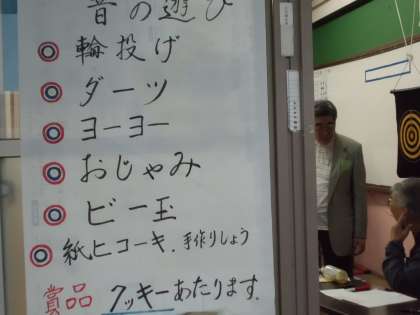 昔の遊び
輪投げ
ダーツ
ヨーヨー
おじゃみ
ビー玉
紙ヒコーキ.手作りしょう
賞品 クッキーあたります.